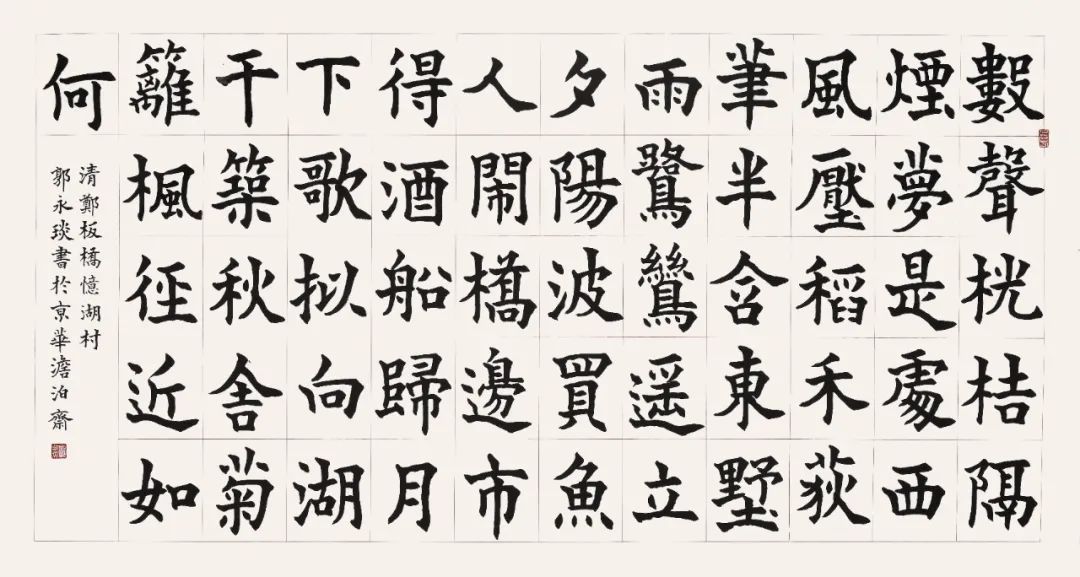 數聲桄桔隔
煙夢是處西
風壓稻禾荻
筆半含東墅
雨鷺鷥遥立
夕陽波買魚
人鬧橋邊市
得酒船歸月
下歌拟向湖
干築秋舍菊
籬楓徑近如
何
清鄭板橋憶湖村
郭永琰書於京華澹泊齋